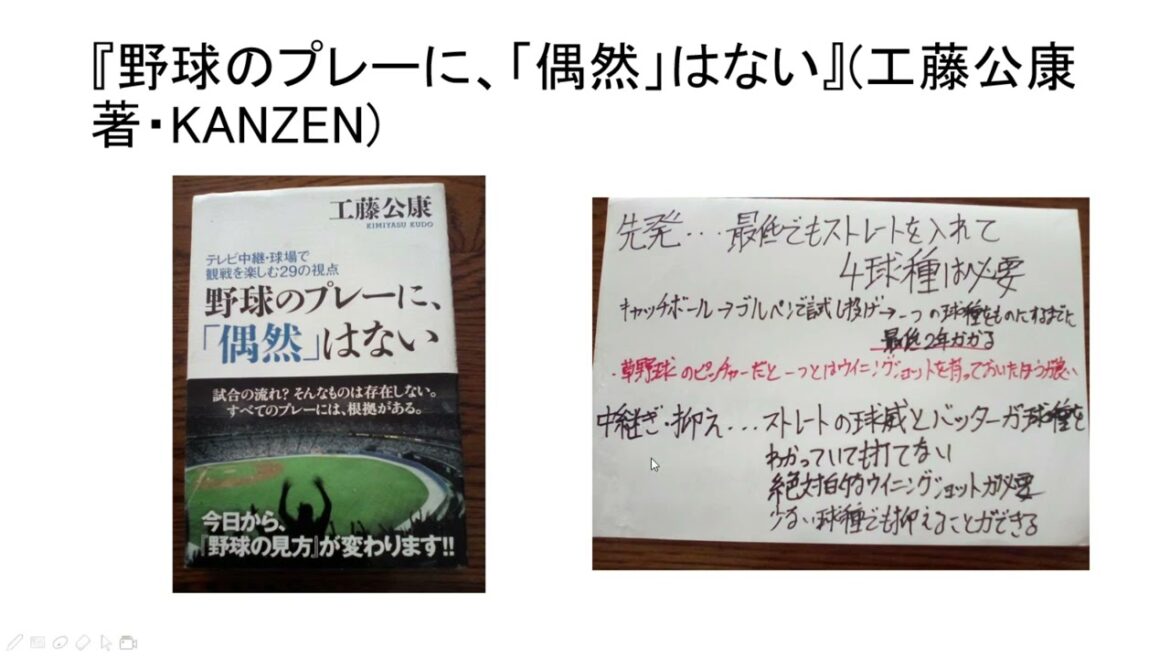 『野球のプレーに、「偶然」はない』(工藤公康
著・KANZEN)
工藤公康
KIMIYASU KUDO
テレビ中継・球場で
観戦を楽しむ29の視点
野球のプレーに、
「偶然」はない
試合の流れ?そんなものは存在しない。
すべてのプレーには、根拠がある。
今日から、
『野球の見方』が変わります!!
先発...最低でもストレートを入れて
4球種は必要
キャッチボール→ブルペンで試し投げ→一つの球種をものにするまでに
最低2年かかる
・草野球のピッチャーだと一つはウイニングショットを持っておいたほうが良い
中継ぎ・抑え...ストレートの球威とバッターが球種を
わかっていても打てない
絶対的ウイニングショットが必要
少ない球種でも抑えることができる